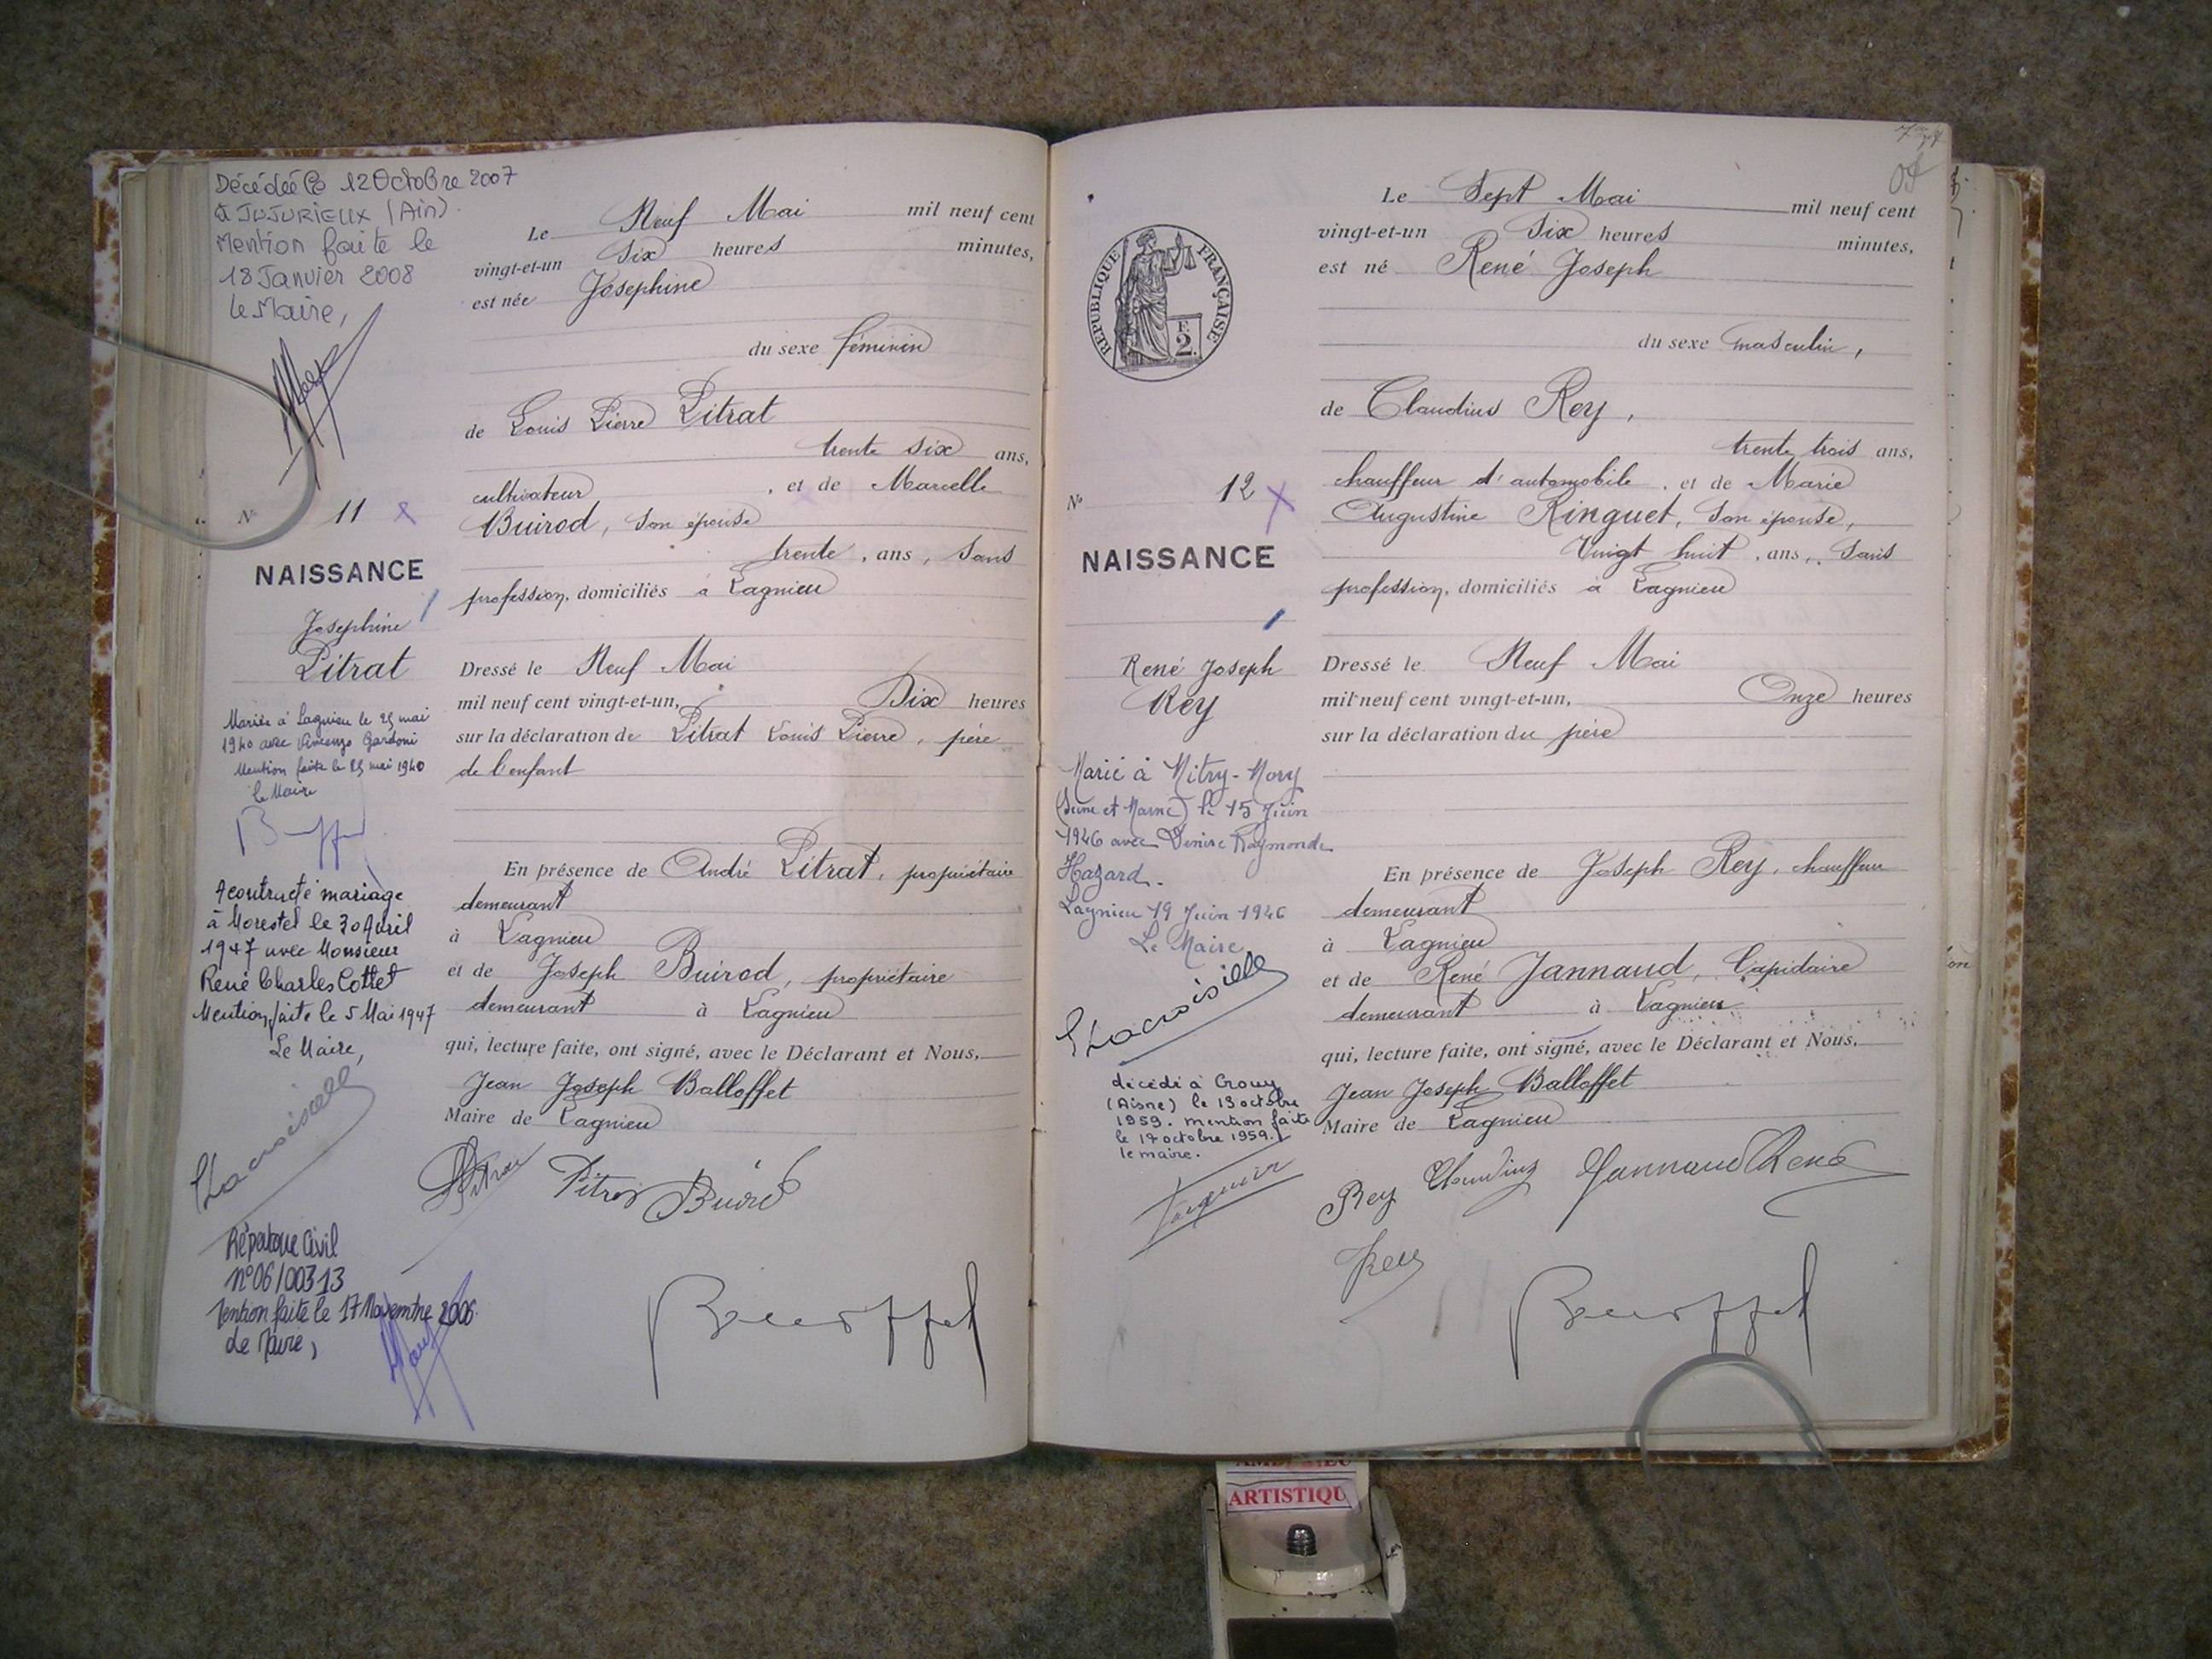 Décédée le 12 Octobre 2007
à JUJURIEUX (Ain).
Mention faite le
18 Janvier 2008
le Maire,
N° 11
NAISSANCE
Josephine
Pitrat
Mariée à Lagnieu le 25 mai
1940 avec Vincenzo Gardoni
Mention faite le 25 mai 1940
le Maire
A contracté mariage
à Morestel le 30 Avril
1947 avec Monsieur
René Charles Cottet
Mention faite le 5 Mai 1947
Le Maire,
Répertoire Civil
n° 06/00313
Mention faite le 17 Novembre 2006.
Le Maire,
Le Neuf Mai mil neuf cent
vingt-et-un Six heures minutes,
est née Joséphine
du sexe féminin
de Louis Pierre Pitrat
trente six ans,
cultivateur, et de Marcelle
Buirod, son épouse
trente, ans, sans
profession, domiciliés à Lagnieu
Dressé le Neuf Mai
mil neuf cent vingt-et-un, Dix heures
sur la déclaration de Pitrat Louis Pierre, père
de l'enfant
En présence de André Pitrat, propriétaire
demeurant
à Lagnieu
et de Joseph Buirod, propriétaire
demeurant à Lagnieu
qui, lecture faite, ont signé, avec le Déclarant et Nous,
Jean Joseph Balloffet
Maire de Lagnieu
RÉPUBLIQUE FRANÇAISE
2
N° 12
NAISSANCE
René Joseph
Rey
Marié à Mitry-Mory
(Seine et Marne) le 15 Juin
1946 avec Denise Raymonde
Hazard.
Lagnieu 19 Juin 1946
Le Maire
décédé à Crouy
(Aisne) le 13 octobre
1959. mention faite
le 17 octobre 1959.
le maire.
Le Sept Mai mil neuf cent
vingt-et-un Six heures minutes,
est né René Joseph
du sexe masculin,
de Claudius Rey,
trente trois ans,
chauffeur d'automobile, et de Marie
Augustine Ringuet, son épouse,
Vingt huit, ans, sans
profession, domiciliés à Lagnieu
Dressé le Neuf Mai
mil neuf cent vingt-et-un, Onze heures
sur la déclaration du père
En présence de Joseph Rey, chauffeur
demeurant
à Lagnieu
et de René Jannaud, Lapidaire
demeurant à Lagnieu
qui, lecture faite, ont signé, avec le Déclarant et Nous,
Jean Joseph Balloffet
Maire de Lagnieu
Rey Claudius Jannaud René
Rey
ARTISTIQU